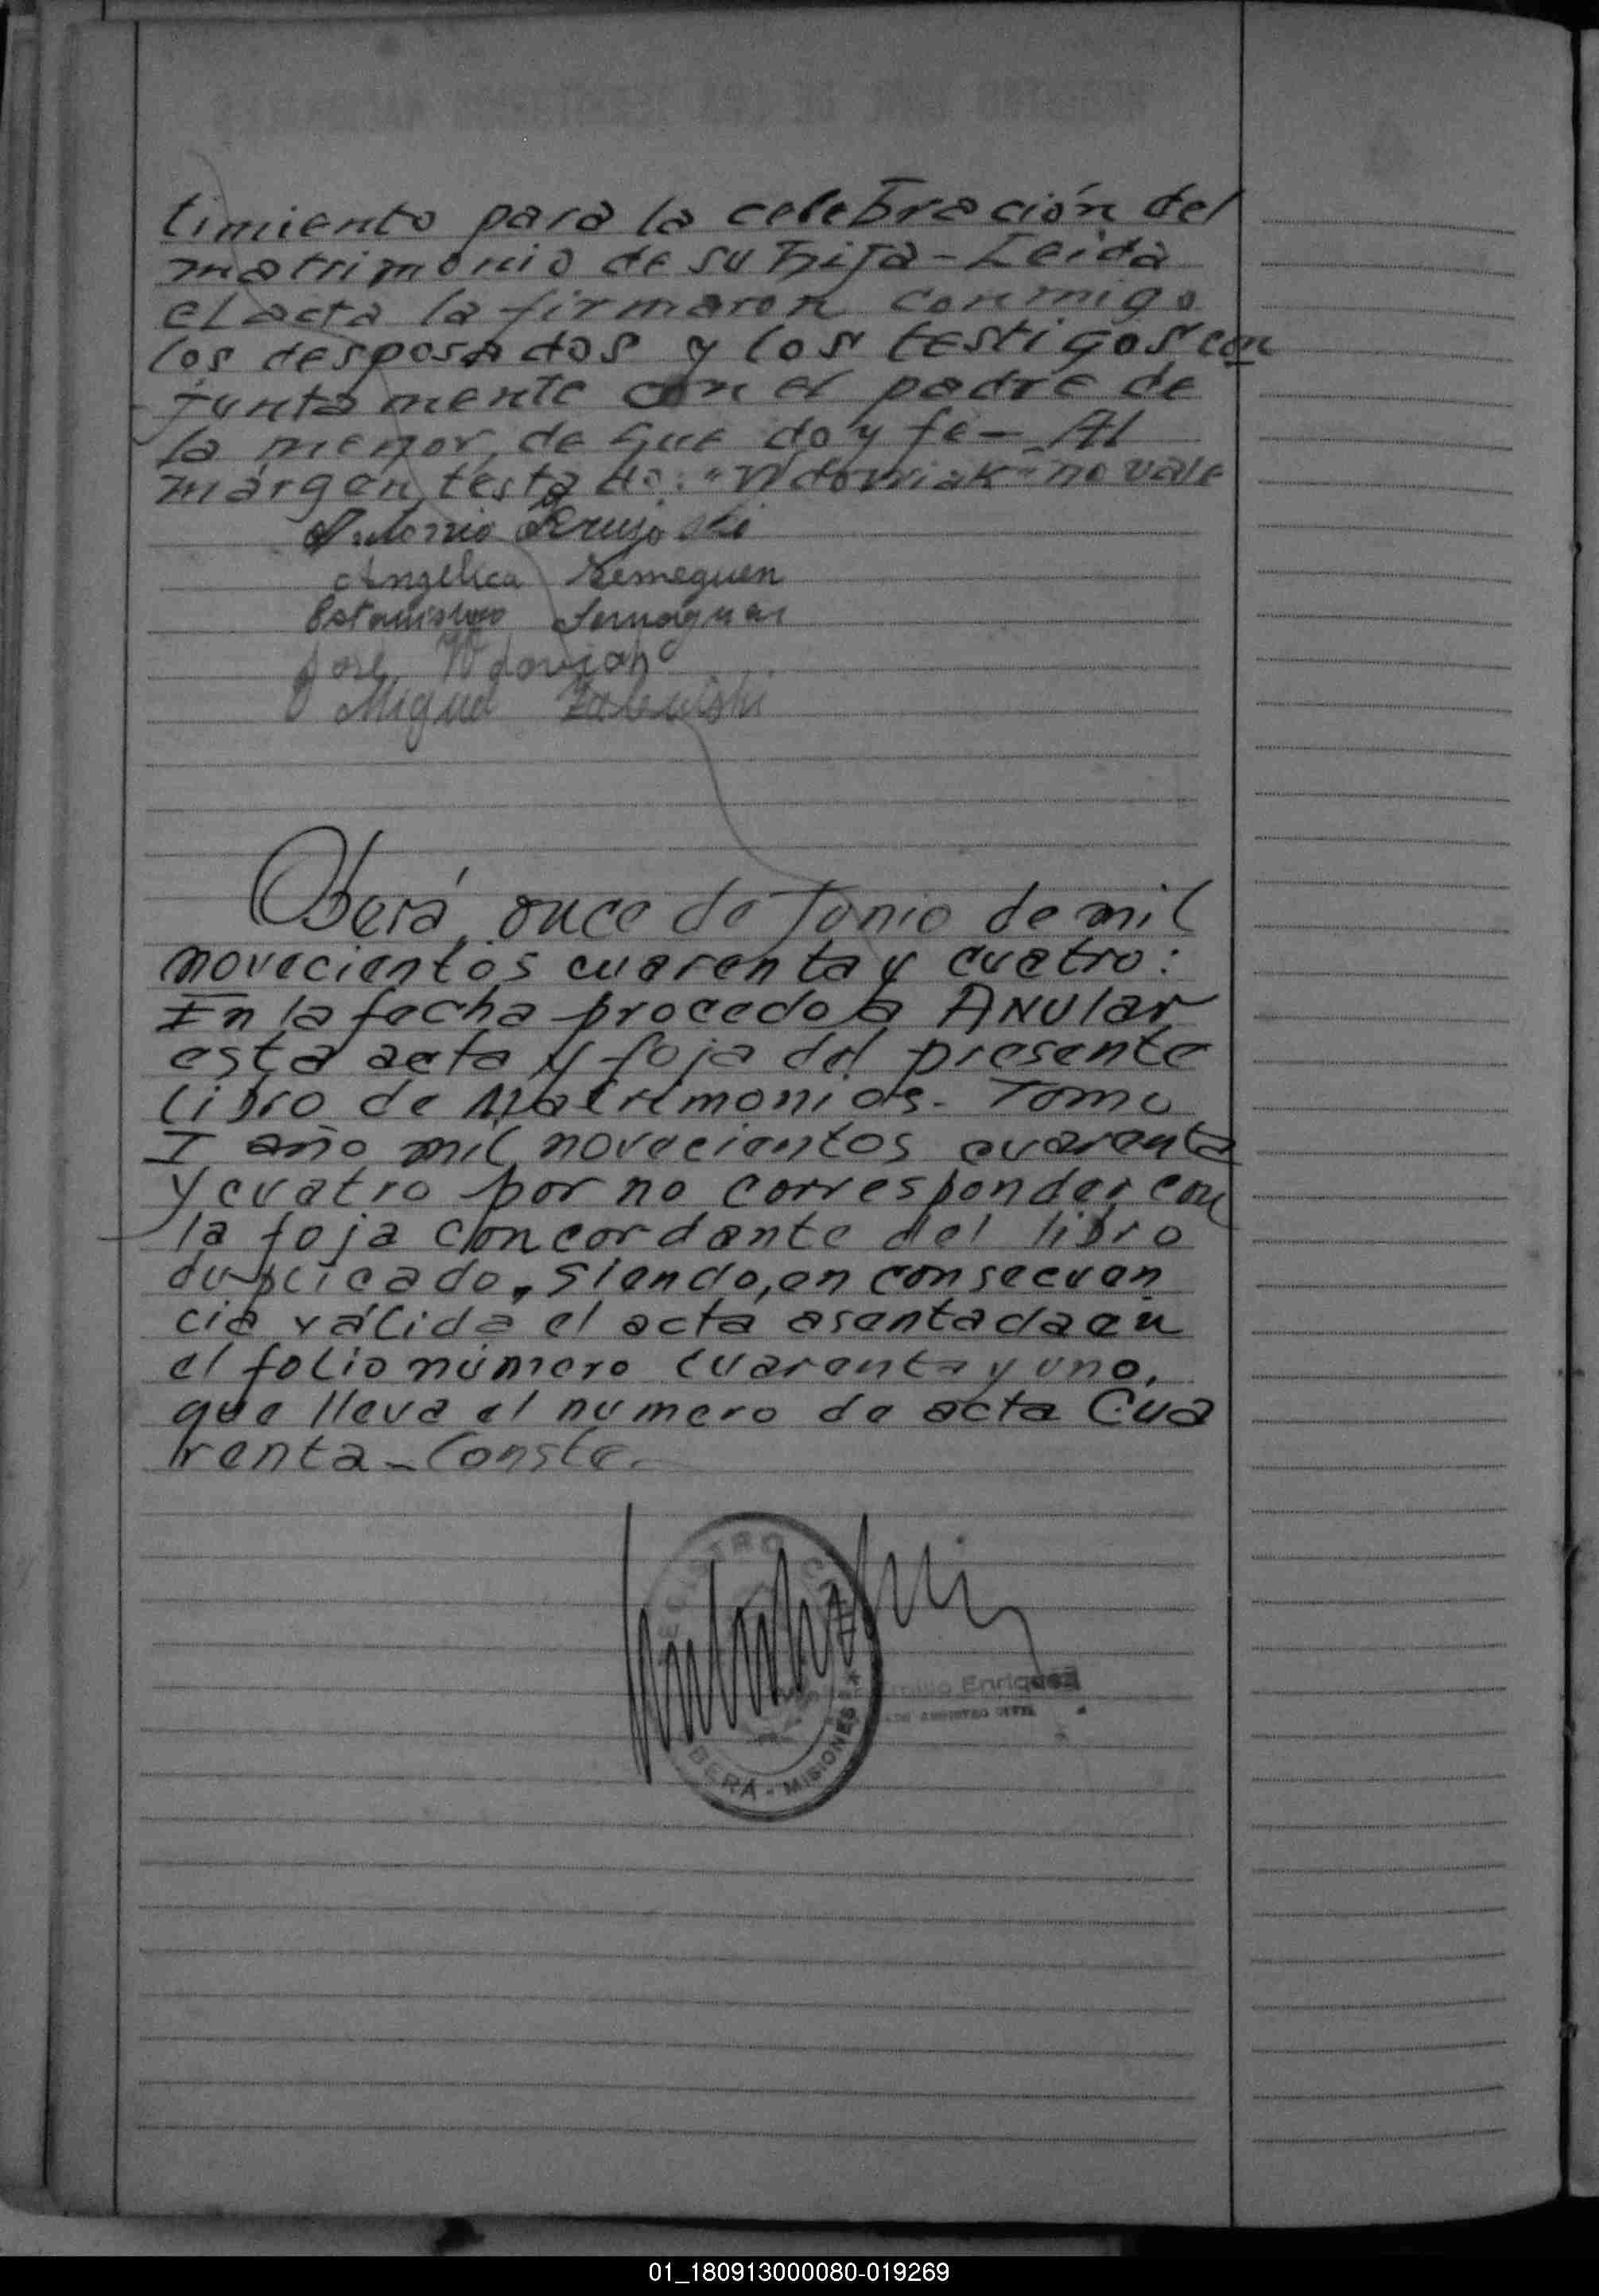 timiento para la celebración del
matrimonio de su hija - Leida
el acta la firmaron conmigo
los desposados y los testigos con
juntamente con el padre de
la menor, de que doy fé - Al
márgen, testado: "Wdowiak" no vale
Antonio
Angelica Semeguen
Estanislao
José
Miguel Zalewski
Oberá, once de Junio de mil
novecientos cuarenta y cuatro:
En la fecha procedo a ANular
esta acta y foja del presente
libro de Matrimonios - Tomo
I año mil novecientos cuarenta
y cuatro por no corresponder con
la foja concordante del libro
duplicado, siendo, en consecuen
cia válida el acta asentada en
el folio número cuarenta y uno,
que lleva el numero de acta Cua
renta - Conste.
REGISTRO CIVIL
OBERÁ - MISIONES
Emilio Enriquez
REGISTRO CIVIL
01_180913000080-019269